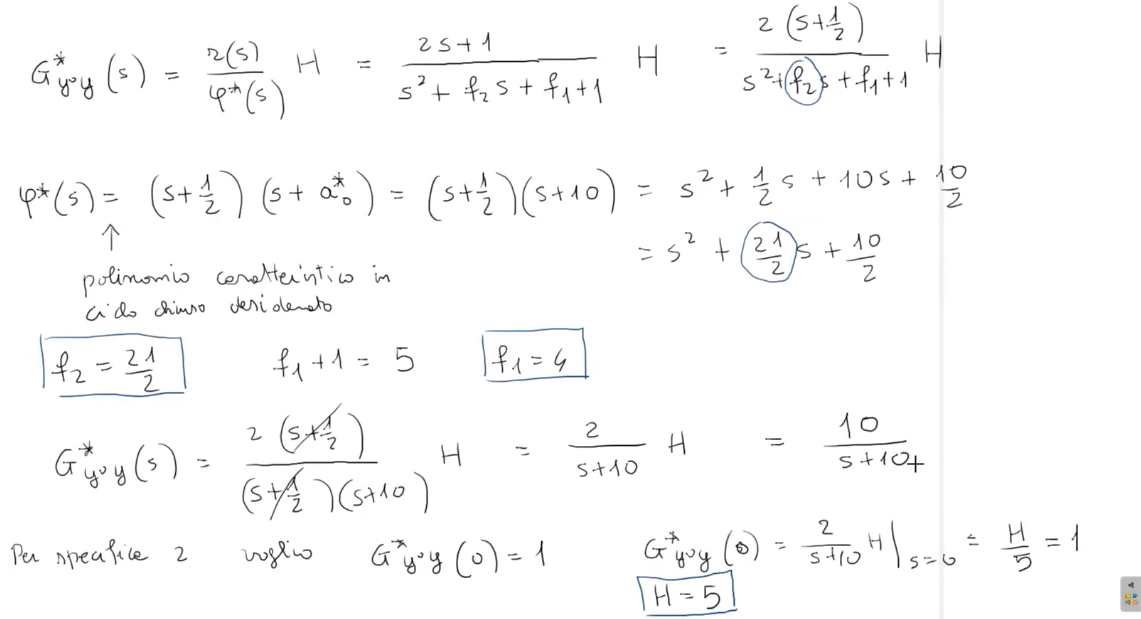 G*y°y (s) = r(s) / φ*(s) H = 2s+1 / s² + f₂s + f₁+1 H = 2 (s+1/2) / s²+f₂s+f₁+1 H
φ*(s) = (s+1/2) (s+a₀*) = (s+1/2)(s+10) = s² + 1/2 s + 10s + 10/2
= s² + 21/2 s + 10/2
↑
polinomio caratteristico in
ciclo chiuso desiderato
f₂ = 21/2 f₁+1 = 5 f₁=4
G*y°y (s) = 2 (s+1/2) / (s+1/2)(s+10) H = 2 / s+10 H = 10 / s+10+
Per specifica 2 voglio G*y°y (0) = 1 G*y°y (0) = 2 / s+10 H |s=0 = H/5 = 1
H = 5